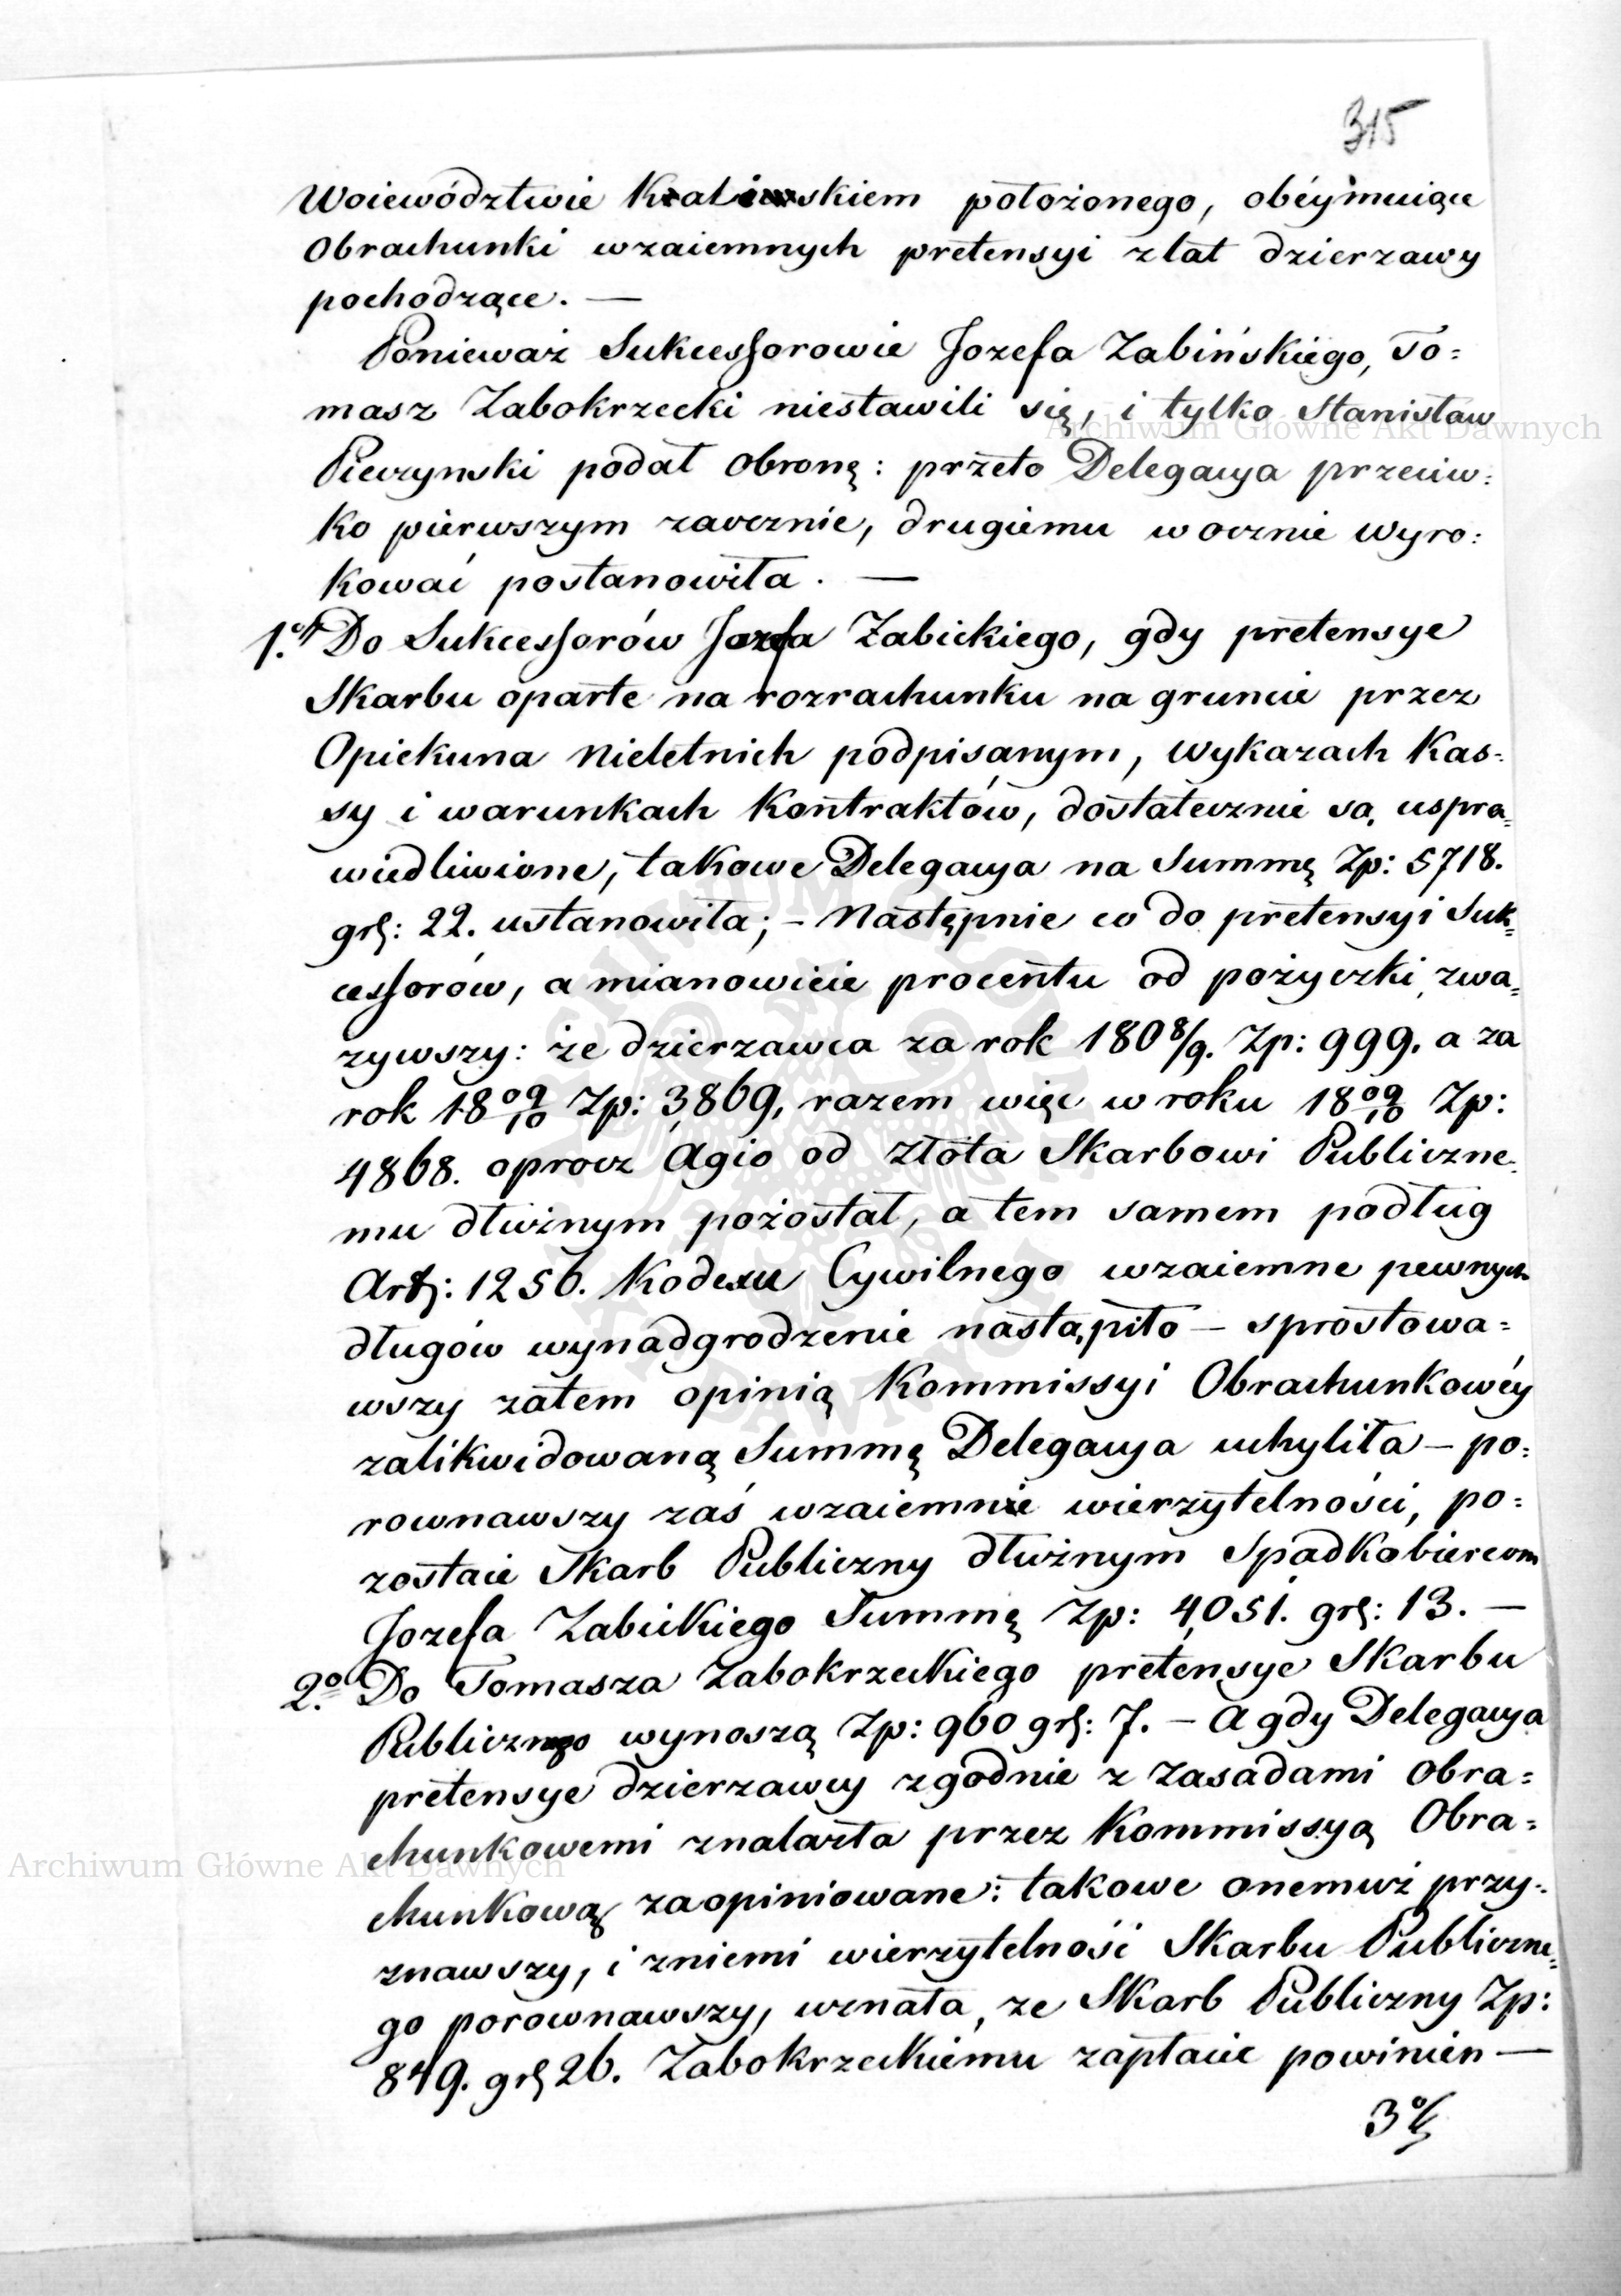 315
Woiewództwie Kaliskiem położonego, obéymuiące
Obrachunki wzaiemnych pretensyi z lat dzierzawy
pochodzące. —
Ponieważ Sukcessorowie Jozefa Zabińskiego, To=
masz Zabokrzecki niestawili się, i tylko Stanisław
Pieczynski podał Obronę: przeto Delegacya przeciw=
ko pierwszym zaocznie, drugiemu w ocznie Wyro=
kować postanowiła. —
1.o Do Sukcessorów Jozefa Zabickiego, gdy pretensye
Skarbu oparte na rozrachunku na gruncie przez
Opiekuna Nieletnich podpisanym, Wykazach Kas=
sy i warunkach Kontraktów, dostatecznie są, uspra=
wiedliwione, takowe Delegacya na Summę Zp: 5718.
gr: 22. ustanowiła; — Następnie co do pretensyi Suk=
cessorów, a mianowicie procentu od pożyczki, zwa=
zywszy: że dzierzawca za rok 1808/9. Zp: 999. a za
rok 1809/10 Zp: 3,869, razem więc w roku 1809/10 Zp:
4868. oprocz Agio od złota Skarbowi Publiczne=
mu dłużnym pozostał, a tem samem podług
Art: 1256. Kodexu Cywilnego wzaiemne pewnych
długów wynadgrodzenie nastąpiło — sprostowa=
wszy zatem opinią Kommissyi Obrachunkowéy
zalikwidowaną Summę Delegacya uchyliła — po=
rownawszy zaś wzaiemne wierzytelności, po=
zostaie Skarb Publiczny dłużnym Spadkobiercom
Jozefa Zabickiego Summę Zp: 4,051. gr: 13. —
2.o Do Tomasza Zabokrzeckiego pretensye Skarbu
Publicznego wynoszą Zp: 960 gr: 7. — A gdy Delegacya
pretensye dzierzawcy zgodnie z zasadami Obra=
chunkowemi znalazła przez Kommissyą Obra=
chunkową zaopiniowane: takowe onemuż przy=
znawszy, i zniemi wierzytelność Skarbu Publiczne=
go porownawszy, uznała, ze Skarb Publiczny Zp:
849. gr 26. Zabokrzeckiemu zapłacic powinien —
3o
Archiwum Główne Akt Dawnych
Archiwum Główne Akt Dawnych